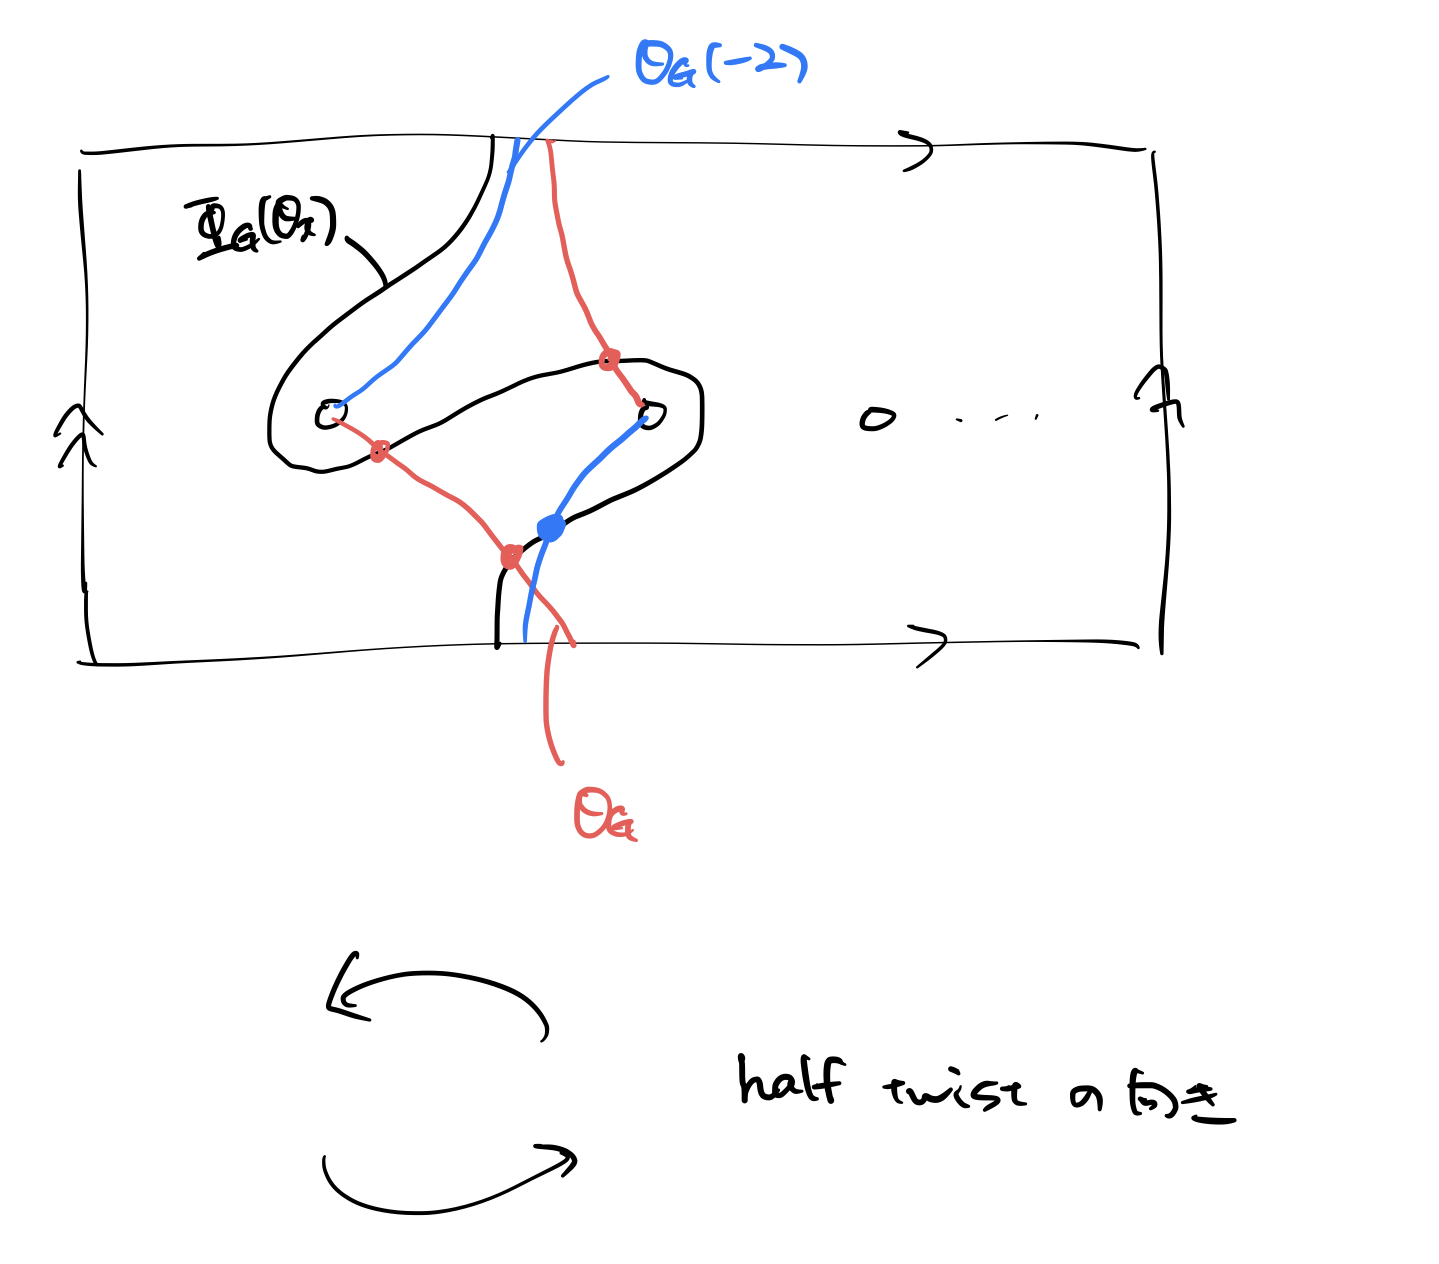 θ_G(-2)
Φ_G(θ_x)
θ_G
half twist の向き